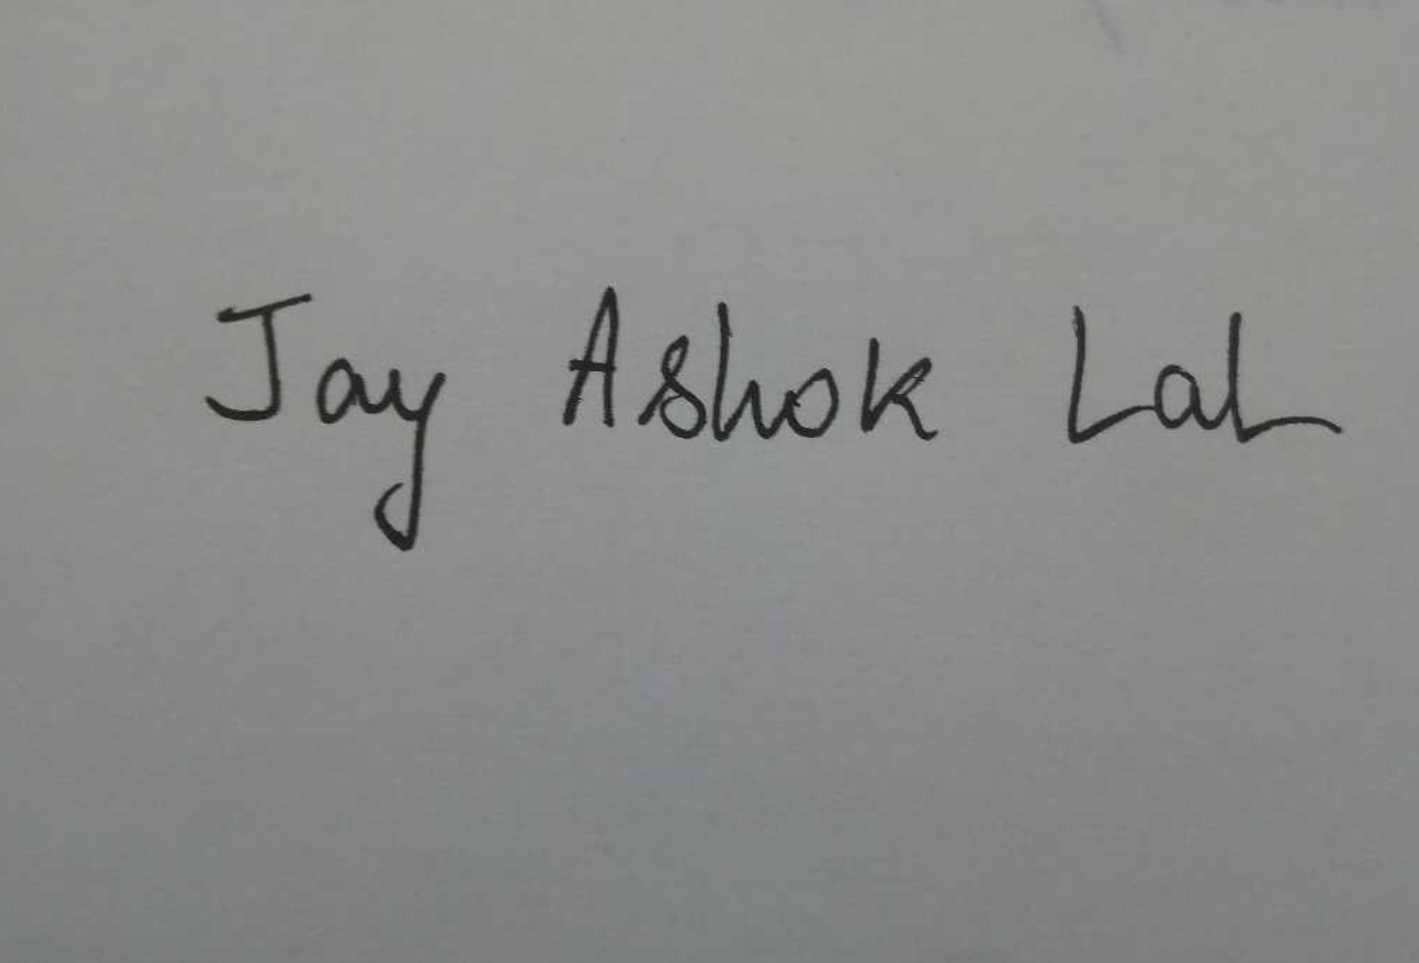 Jay Ashok Lal